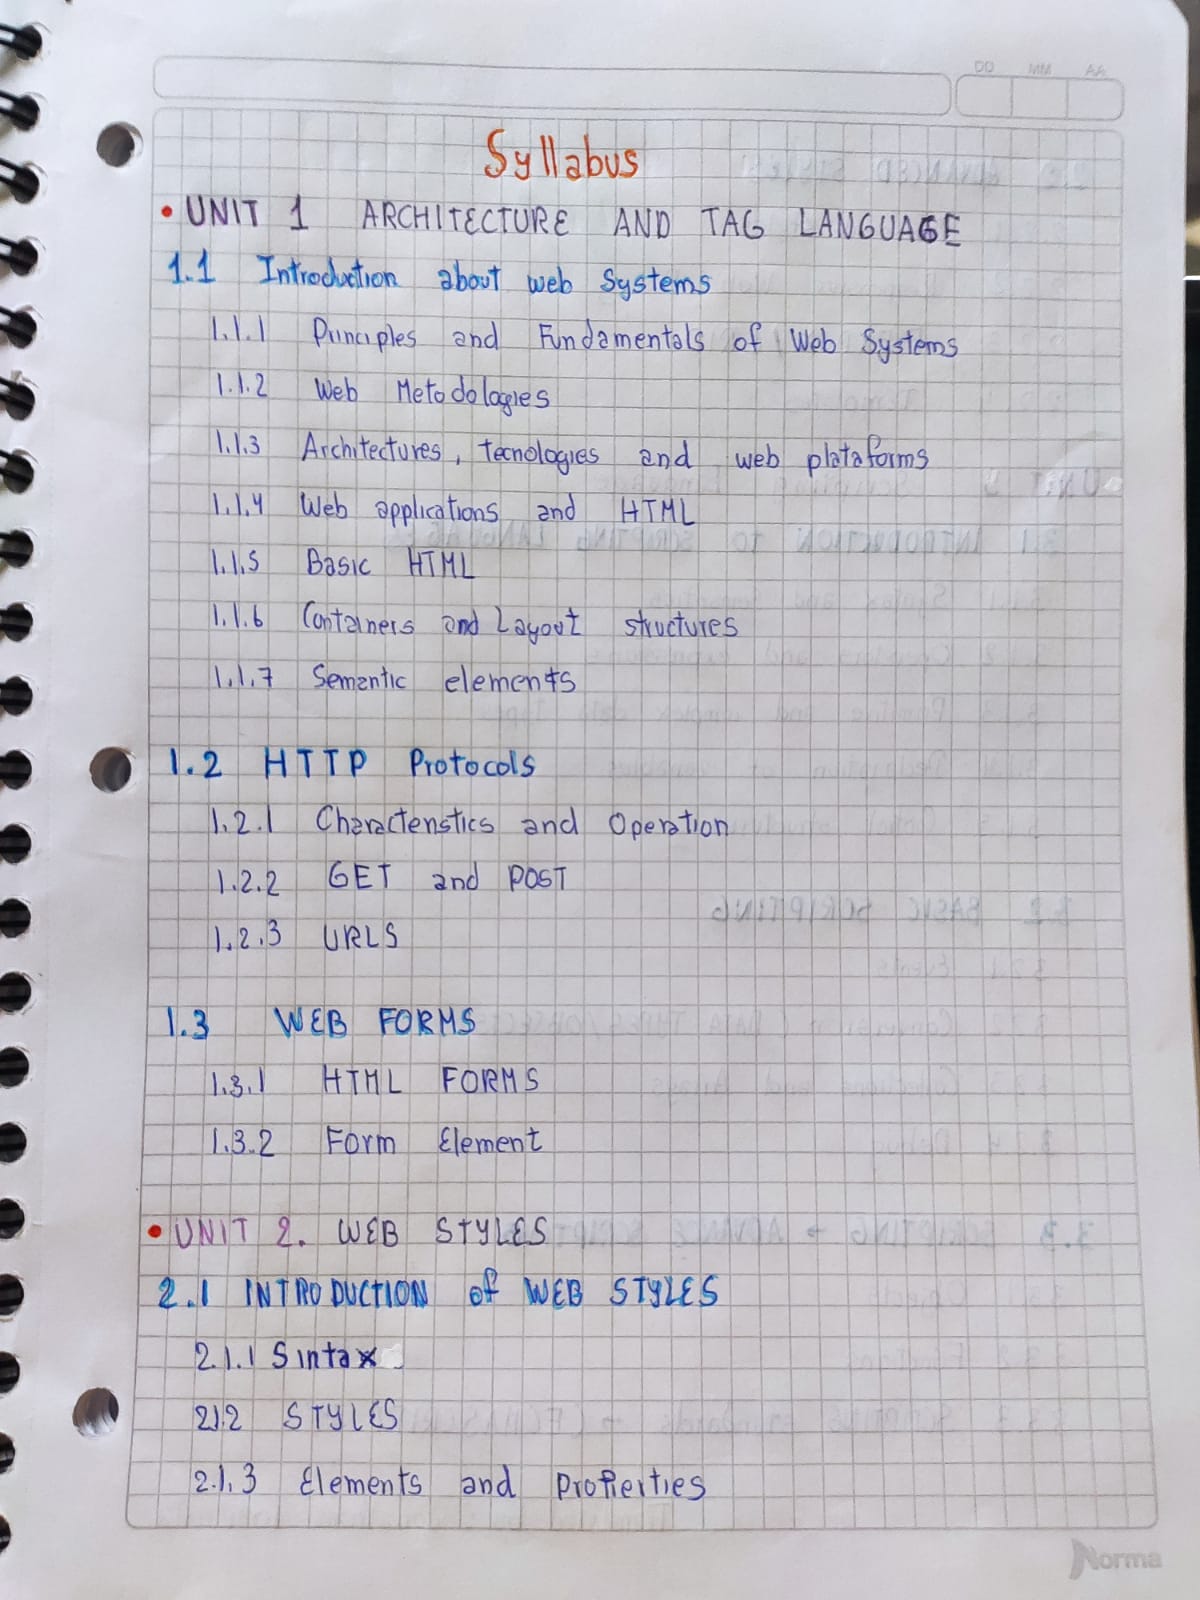 DD MM AA
Syllabus
• UNIT 1 ARCHITECTURE AND TAG LANGUAGE
1.1 Introduction about web Systems
1.1.1 Principles and Fundamentals of Web Systems
1.1.2 Web Metodologies
1.1.3 Architectures, tecnologies and web plataforms
1.1.4 Web applications and HTML
1.1.5 Basic HTML
1.1.6 Containers and Layout structures
1.1.7 Semantic elements
1.2 HTTP Protocols
1.2.1 Characteristics and Operation
1.2.2 GET and POST
1.2.3 URLS
1.3 WEB FORMS
1.3.1 HTML FORMS
1.3.2 Form Element
• UNIT 2. WEB STYLES
2.1 INTRODUCTION of WEB STYLES
2.1.1 Sintax
2.1.2 STYLES
2.1.3 Elements and Properties
Norma